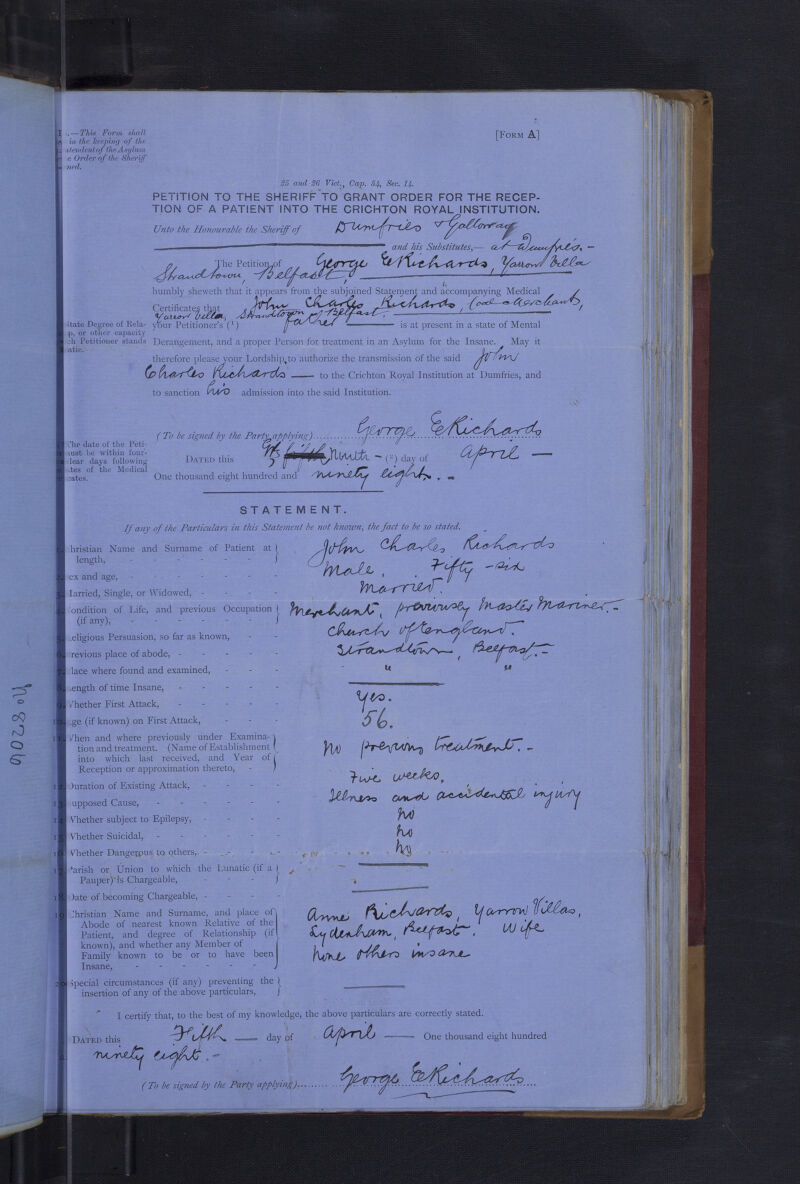 .—This Form shall
in the keeping of the
ntendent of the Asylum
e Order of the Sheriff
ned.
[FORM A]
25 and 26 Vict., Cap. 54, Sec. 14.
PETITION TO THE SHERIFF TO GRANT ORDER FOR THE RECEP-
TION OF A PATIENT INTO THE CRICHTON ROYAL INSTITUTION.
Unto the Honourable the Sheriff of Dumfries & Galloway
and his Substitutes,— at Dumfries.-
The Petition of George E Richards, Yarrow Villa
Strandtown, Belfast,
humbly sheweth that it appears from the subjoined Statement and accompanying Medical
Certificates that John Charles Richards, Coal Merchant,
Yarrow Villa, Strandtown, Belfast.
your Petitioner's (1) father is at present in a state of Mental
State Degree of Rela-
p, or other capacity
ch Petitioner stands
atic.
Derangement, and a proper Person for treatment in an Asylum for the Insane. May it
therefore please your Lordship to authorize the transmission of the said John
Charles Richards — to the Crichton Royal Institution at Dumfries, and
to sanction his admission into the said Institution.
(To be signed by the Party applying) George E Richards
The date of the Peti-
must be within four-
clear days following
ates of the Medical
cates.
DATED this fifth Ninth - (2) day of April —
One thousand eight hundred and ninety eight. -
STATEMENT.
If any of the Particulars in this Statement be not known, the fact to be so stated.
Christian Name and Surname of Patient at length, John Charles Richards
Sex and age, Male. Fifty-six
Married, Single, or Widowed, Married
Condition of Life, and previous Occupation (if any), Merchant, previously Master Mariner.-
Religious Persuasion, so far as known, Church of England.
Previous place of abode, Strandtown, Belfast.-
Place where found and examined, " "
Length of time Insane,
Whether First Attack, Yes.
Age (if known) on First Attack, 56.
When and where previously under Examina-
tion and treatment. (Name of Establishment
into which last received, and Year of
Reception or approximation thereto, No previous treatment.-
Duration of Existing Attack, Five weeks.
Supposed Cause, Illness and accidental injury
Whether subject to Epilepsy, no
Whether Suicidal, no
Whether Dangerous to others, no
Parish or Union to which the Lunatic (if a
Pauper) is Chargeable,
Date of becoming Chargeable,
Christian Name and Surname, and place of
Abode of nearest known Relative of the
Patient, and degree of Relationship (if
known), and whether any Member of
Family known to be or to have been
Insane,
Anne Richards, Yarrow Villas,
Sydenham, Belfast. Wife
None others insane
Special circumstances (if any) preventing the
insertion of any of the above particulars,
I certify that, to the best of my knowledge, the above particulars are correctly stated.
DATED this Fifth — day of April — One thousand eight hundred
ninety eight.-
(To be signed by the Party applying) George E Richards
No 8206